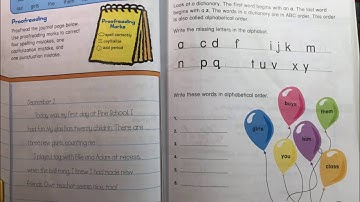 girls
the
Proofreading
Proofread the journal page below.
Use proofreading marks to correct
four spelling mistakes, one
capitalization mistake, and
one punctuation mistake.
Proofreading
Marks
spell correctly
capitalize
add period
September 1
Today was my first day at Pine School. I
twenty children. There are
three new girls, counting me.
I play a tag with Ellie and Adam at recess.
the bell rang, I knew I had made new
friends. Our teacher seems nice, too!
Look at a dictionary. The first word begins with an a. The last word
begins with a z. The words in a dictionary are in ABC order. This order
is also called alphabetical order.
Write the missing letters in the alphabet.
a c d f i j k m
n p q t u v x y
Write these words in alphabetical order.
1.
2.
3.
4.
5.
6.
boys
them
girls
him
you
class